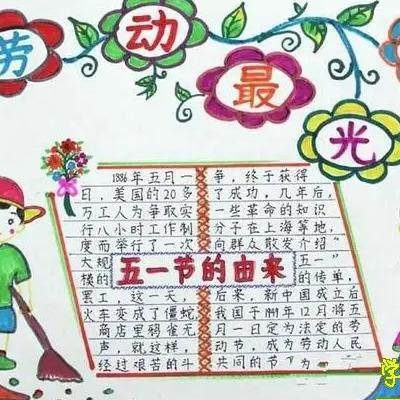 劳动最光
1886年五月一
日，美国的20多
万工人为争取实
行八小时工作制
度而举行了一次
大规
模的
罢工，这一天，
火车变成了僵蛇，
商店里鸦雀无
声，就这样，
经过艰苦的斗
五一节的由来
争，终于获得
了成功，几年后，
一些革命的知识
分子在上海等地，
向群众散发介绍“
五一”
的传单，
后来，新中国成立后
我国于1949年12月将五
月一日定为法定的劳
动节，成为劳动人民
共同的节
学